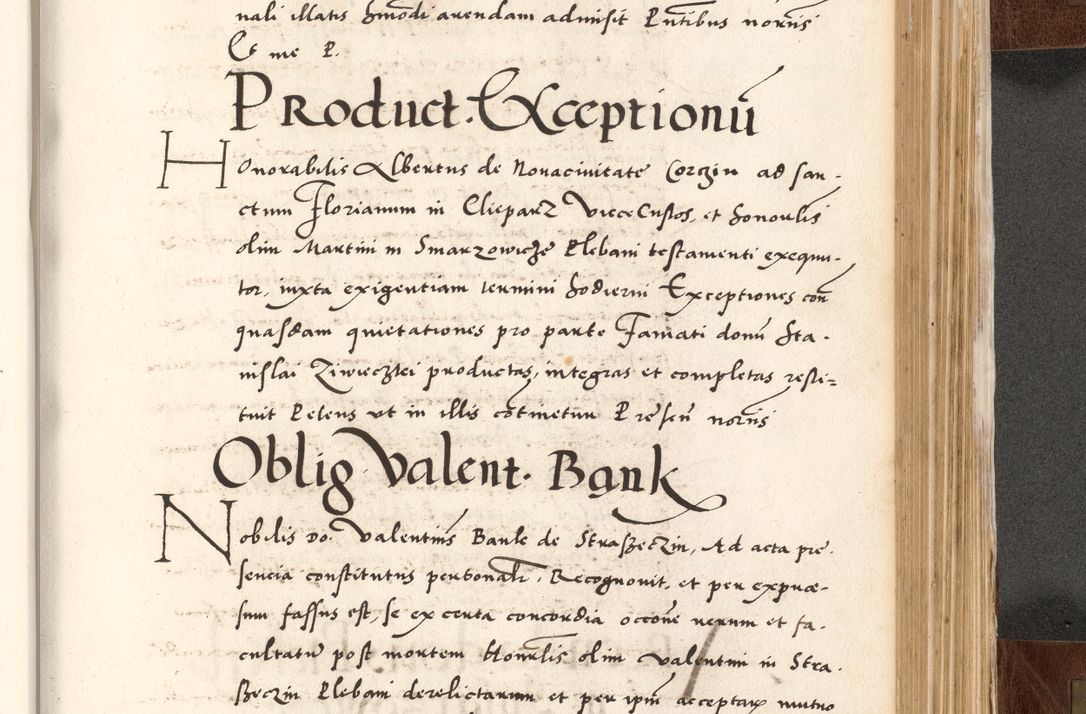 nali illatis hmōdi arendam admisit Pntibus nōriis
Et me P.
Product. Exceptionū
Honorabilis Albertus de Novacivitate Corczin ad san-
ctum Florianum in Clieparz ViceCustos, et honorlis
olim Martini in Smarzowicze Plebani testamenti exequu-
tor, iuxta exigentiam termini hodierni Exceptiones con̄
quasdam quietationes pro parte Famati domī Sta-
nislai Ziwieczlei productas, integras et completas resti-
tuit Petens ut in illis cōtinetur Presen̄ nōriis
Oblig Valent. Bank
Nobilis Do. Valentin̄s Bank de Straszeczin, Ad acta pre-
sencia constitutus personalr. Recognovit, et per expræ-
sum fassus est, se ex certa concordia occōne rerum et fa-
cultatū post mortem Honrlis olim Valentini in Stra-
szeczin Plebani derelictarum et per ipm̄ acceptar mutuo